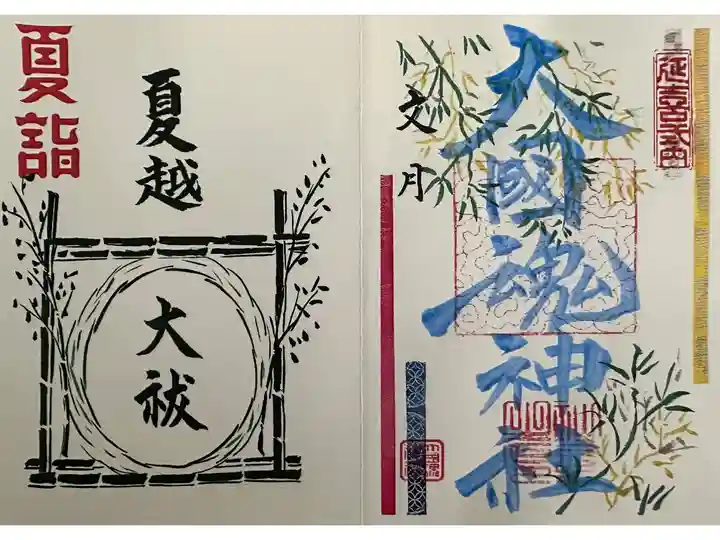 延喜式内
大國魂神社
文月
夏越
大祓
夏詣